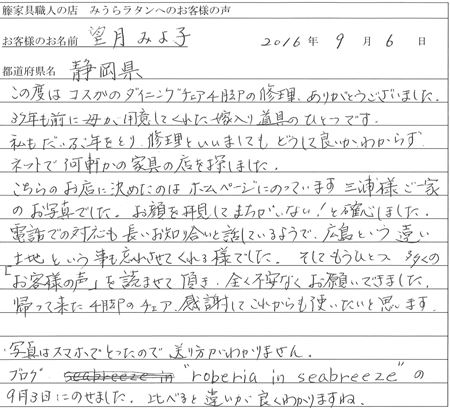 籐家具職人の店 みうらラタンへのお客様の声
お客様のお名前 望月みよ子 2016年9月6日
都道府県名 静岡県
この度はコスガのダイニングチェア4脚の修理、ありがとうございました。
37年も前に母が用意してくれた嫁入り道具のひとつです。
私もだいぶ年をとり、修理といいましてもどうして良いかわからず
ネットで何軒かの家具の店を探しました。
こちらのお店に決めたのはホームページにのっています三浦様ご一家
のお写真でした。お顔を拝見してまちがいない!と確心しました。
電話での対応も長いお知り合いと話しているようで、広島という遠い
土地という事も忘れさせてくれる様でした。そしてもうひとつ 多くの
「お客様の声」を読ませて頂き、全く不安なくお願いできました。
帰って来た4脚のチェア、感謝してこれからも使いたいと思います。
・写真はスマホでとったので送り方がわかりません。
ブログ seabreeze in "roberia in seabreeze"の
9月3日にのせました。比べると違いが良くわかりますね。